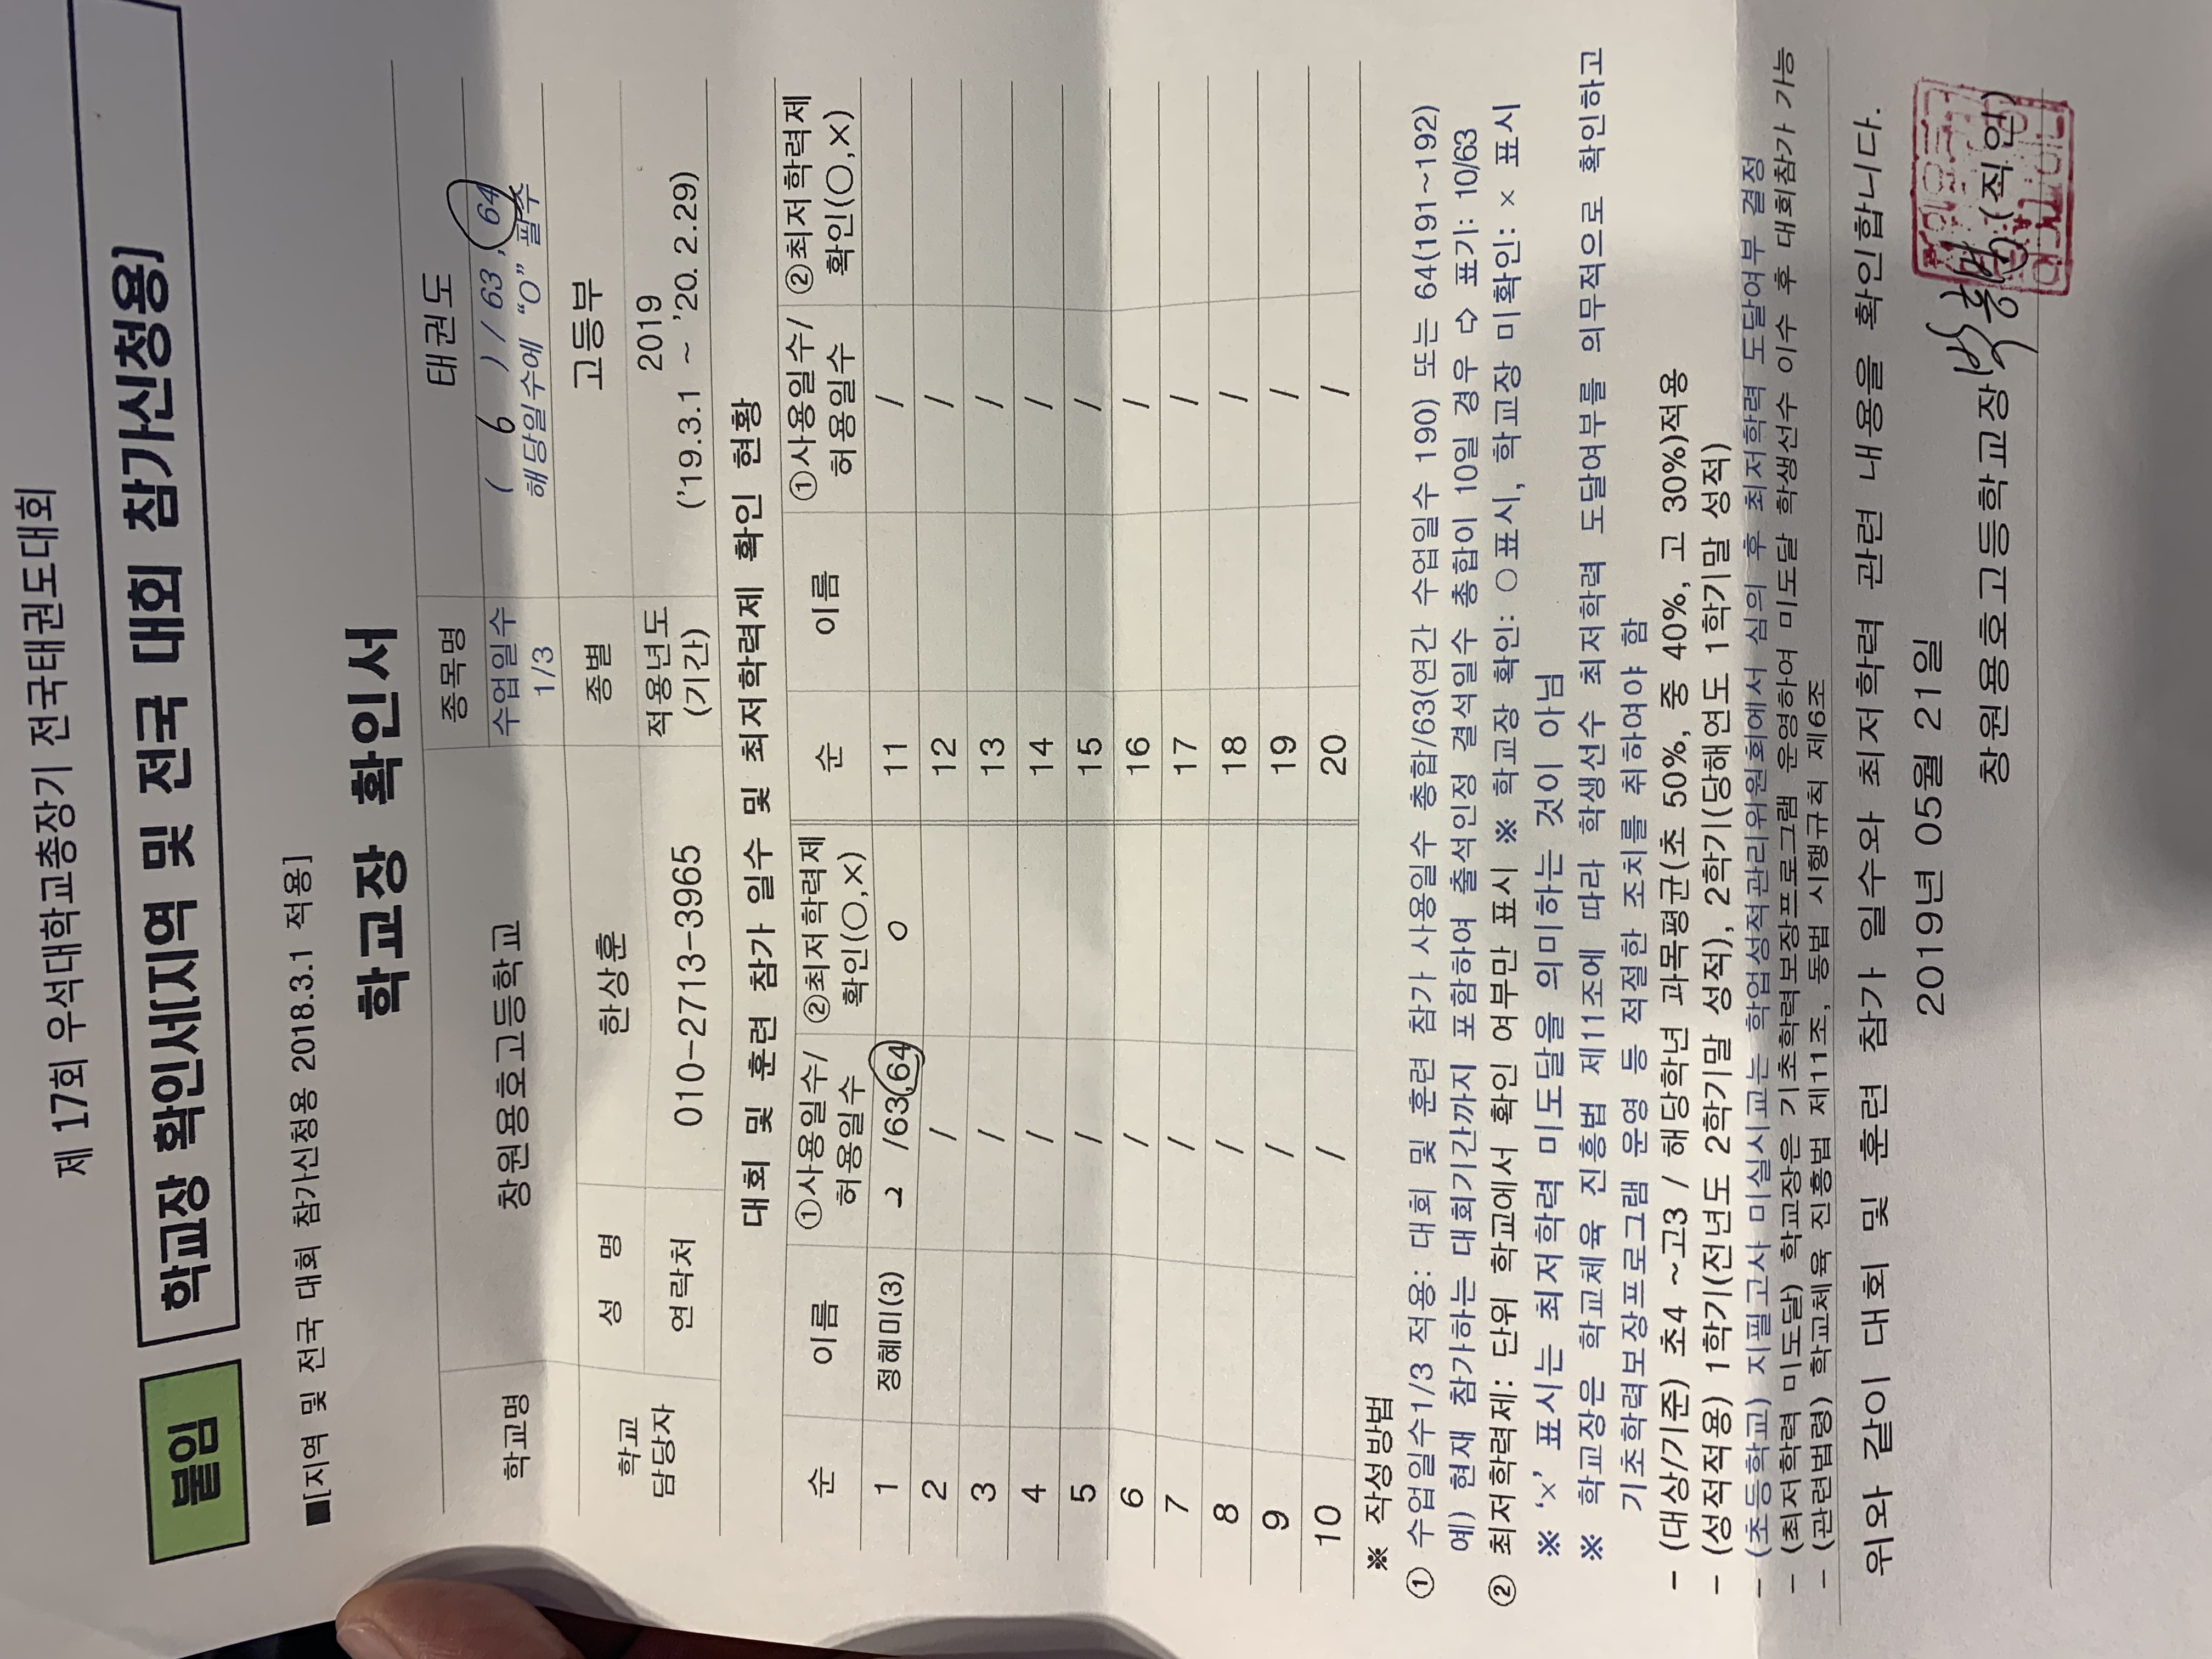 제 17회 우석대학교총장기 전국태권도대회
붙임 학교장 확인서[지역 및 전국 대회 참가신청용]
■[지역 및 전국 대회 참가신청용 2018.3.1 적용]
학교장 확인서
학교명 창원용호고등학교 종목명 태권도
수업일수 1/3 ( 6 ) / 63 , 64
해당일수에 “O” 필수
학교 담당자 성 명 한상훈 종별 고등부
연락처 010-2713-3965 적용년도 (기간) 2019
('19.3.1 ~ '20. 2.29)
대회 및 훈련 참가 일수 및 최저학력제 확인 현황
순 이름 ①사용일수/허용일수 ②최저학력제 확인(○,×) 순 이름 ①사용일수/허용일수 ②최저학력제 확인(○,×)
1 정혜미(3) 2 /63,64 o 11 /
2 / 12 /
3 / 13 /
4 / 14 /
5 / 15 /
6 / 16 /
7 / 17 /
8 / 18 /
9 / 19 /
10 / 20 /
※ 작성방법
① 수업일수1/3 적용: 대회 및 훈련 참가 사용일수 총합/63(연간 수업일수 190) 또는 64(191~192)
예) 현재 참가하는 대회기간까지 포함하여 출석인정 결석일수 총합이 10일 경우 ⇨ 표기: 10/63
② 최저학력제: 단위 학교에서 확인 여부만 표시 ※ 학교장 확인: ○표시, 학교장 미확인: × 표시
※ ‘×’ 표시는 최저학력 미도달을 의미하는 것이 아님
※ 학교장은 학교체육 진흥법 제11조에 따라 학생선수 최저학력 도달여부를 의무적으로 확인하고
기초학력보장프로그램 운영 등 적절한 조치를 취하여야 함
- (대상/기준) 초4 ~고3 / 해당학년 과목평균(초 50%, 중 40%, 고 30%)적용
- (성적적용) 1학기(전년도 2학기말 성적), 2학기(당해연도 1학기말 성적)
- (초등학교) 지필고사 미실시교는 학업성적관리위원회에서 심의 후 최저학력 도달여부 결정
- (최저학력 미도달) 학교장은 기초학력보장프로그램 운영하여 미도달 학생선수 이수 후 대회참가 가능
- (관련법령) 학교체육 진흥법 제11조, 동법 시행규칙 제6조
위와 같이 대회 및 훈련 참가 일수와 최저학력 관련 내용을 확인합니다.
2019년 05월 21일
창원용호고등학교장 (직인)